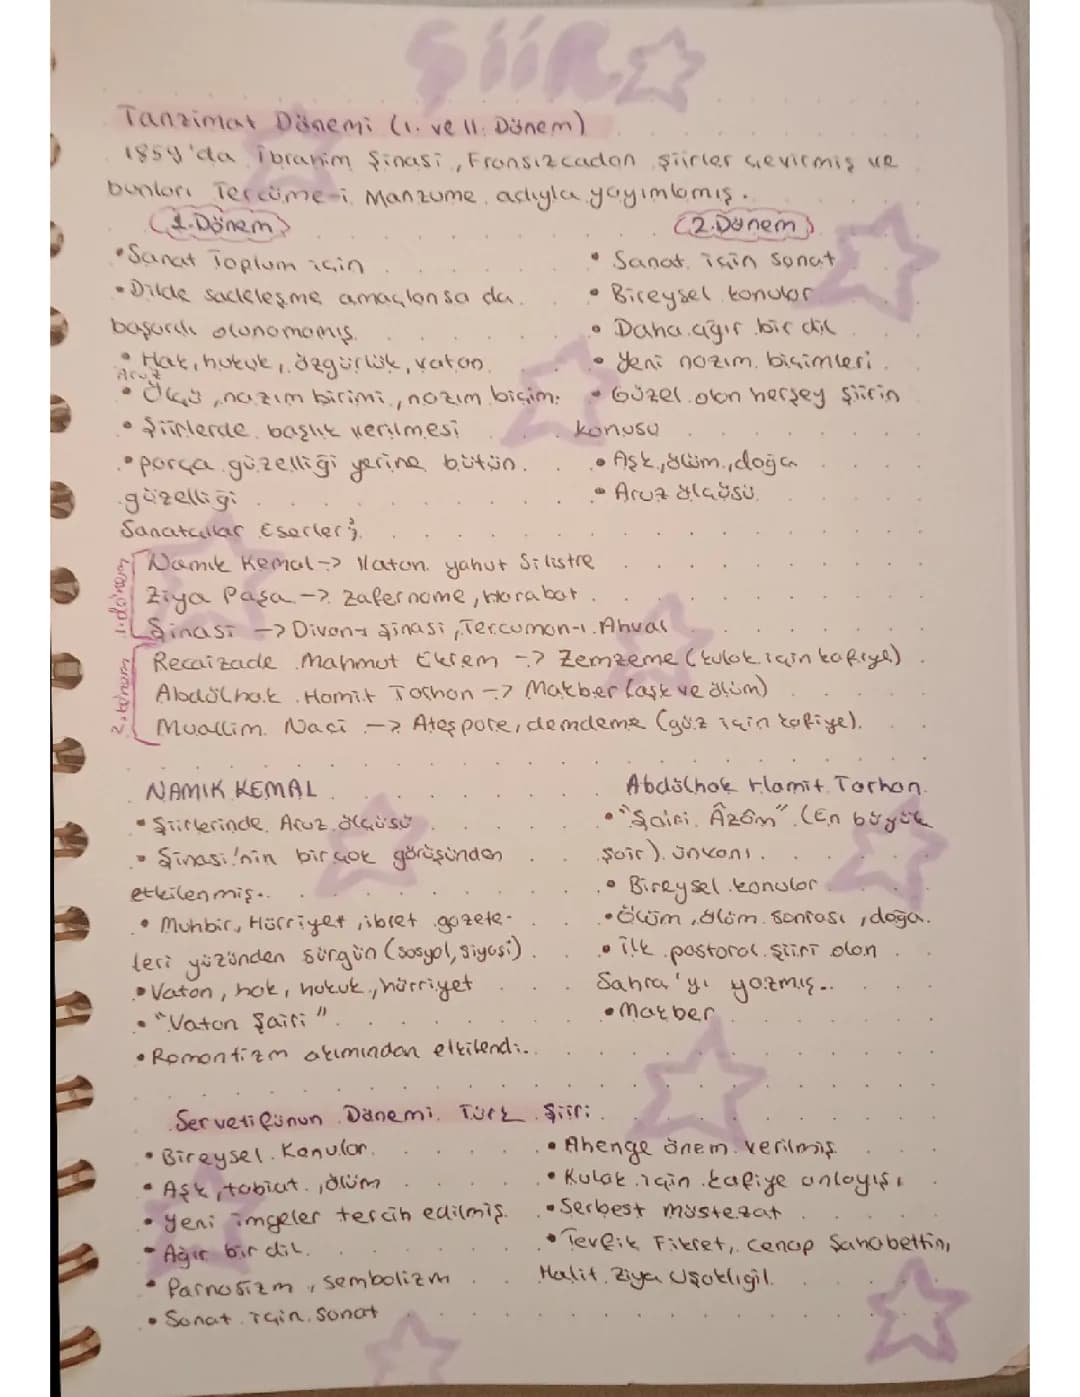 ŞİİR
Tanzimat Dönemi (I. ve II. Dönem)
1859'da İbrahim Şinasi, Fransızcadan şiirler çevirmiş ve
bunları Tercüme-i Manzume adıyla yayımlamış.
1.Dönem
• Sanat Toplum için
• Dilde sadeleşme amaçlansa da
başarılı olunamamış.
• Hak, hukuk, özgürlük, vatan
Aruz
• Ölçü, nazım birimi, nazım biçim.
• Şiirlerde başlık verilmesi
• parça güzelliği yerine bütün
güzelliği
2.Dönem
• Sanat için sanat
• Bireysel konular
• Daha ağır bir dil
• Yeni nazım biçimleri
• Güzel olan herşey şiirin
konusu
• Aşk, ölüm, doğa
• Aruz ölçüsü
Sanatçılar Eserler;
1.dönem
Namık Kemal -> Vatan yahut Silistre
Ziya Paşa -> Zafername, Harabat
Şinasi -> Divan-ı Şinasi, Tercuman-ı Ahval
2.dönem
Recaizade Mahmut Ekrem -> Zemzeme (kulak için kafiye)
Abdülhak Hamit Tarhan -> Makber (aşk ve ölüm)
Muallim Naci -> Ateşpare, demdeme (göz için kafiye).
NAMIK KEMAL
• Şiirlerinde Aruz ölçüsü
• Şinasi'nin bir çok görüşünden
etkilenmiş..
• Muhbir, Hürriyet, ibret gazete-
leri yüzünden sürgün (sosyal, siyasi)
• Vatan, hak, hukuk, hürriyet
• "Vatan Şairi"
• Romantizm akımından etkilendi..
Abdülhak Hamit Tarhan
• "Şairi Âzâm" (En büyük
şair) ünvanı.
• Bireysel konular
• Ölüm, ölüm sonrası, doğa
• İlk pastoral şiiri olan
Sahra'yı yazmış..
• Makber
Servetifünun Dönemi Türk Şiiri
• Bireysel Konular
• Aşk, tabiat, ölüm
• Yeni imgeler tercih edilmiş
• Ağır bir dil
• Parnasizm, sembolizm
• Sanat için sanat
• Ahenge önem verilmiş
• Kulak için kafiye anlayışı
• Serbest müstezat
• Tevfik Fikret, Cenap Şahabettin,
Halit Ziya Uşaklıgil.